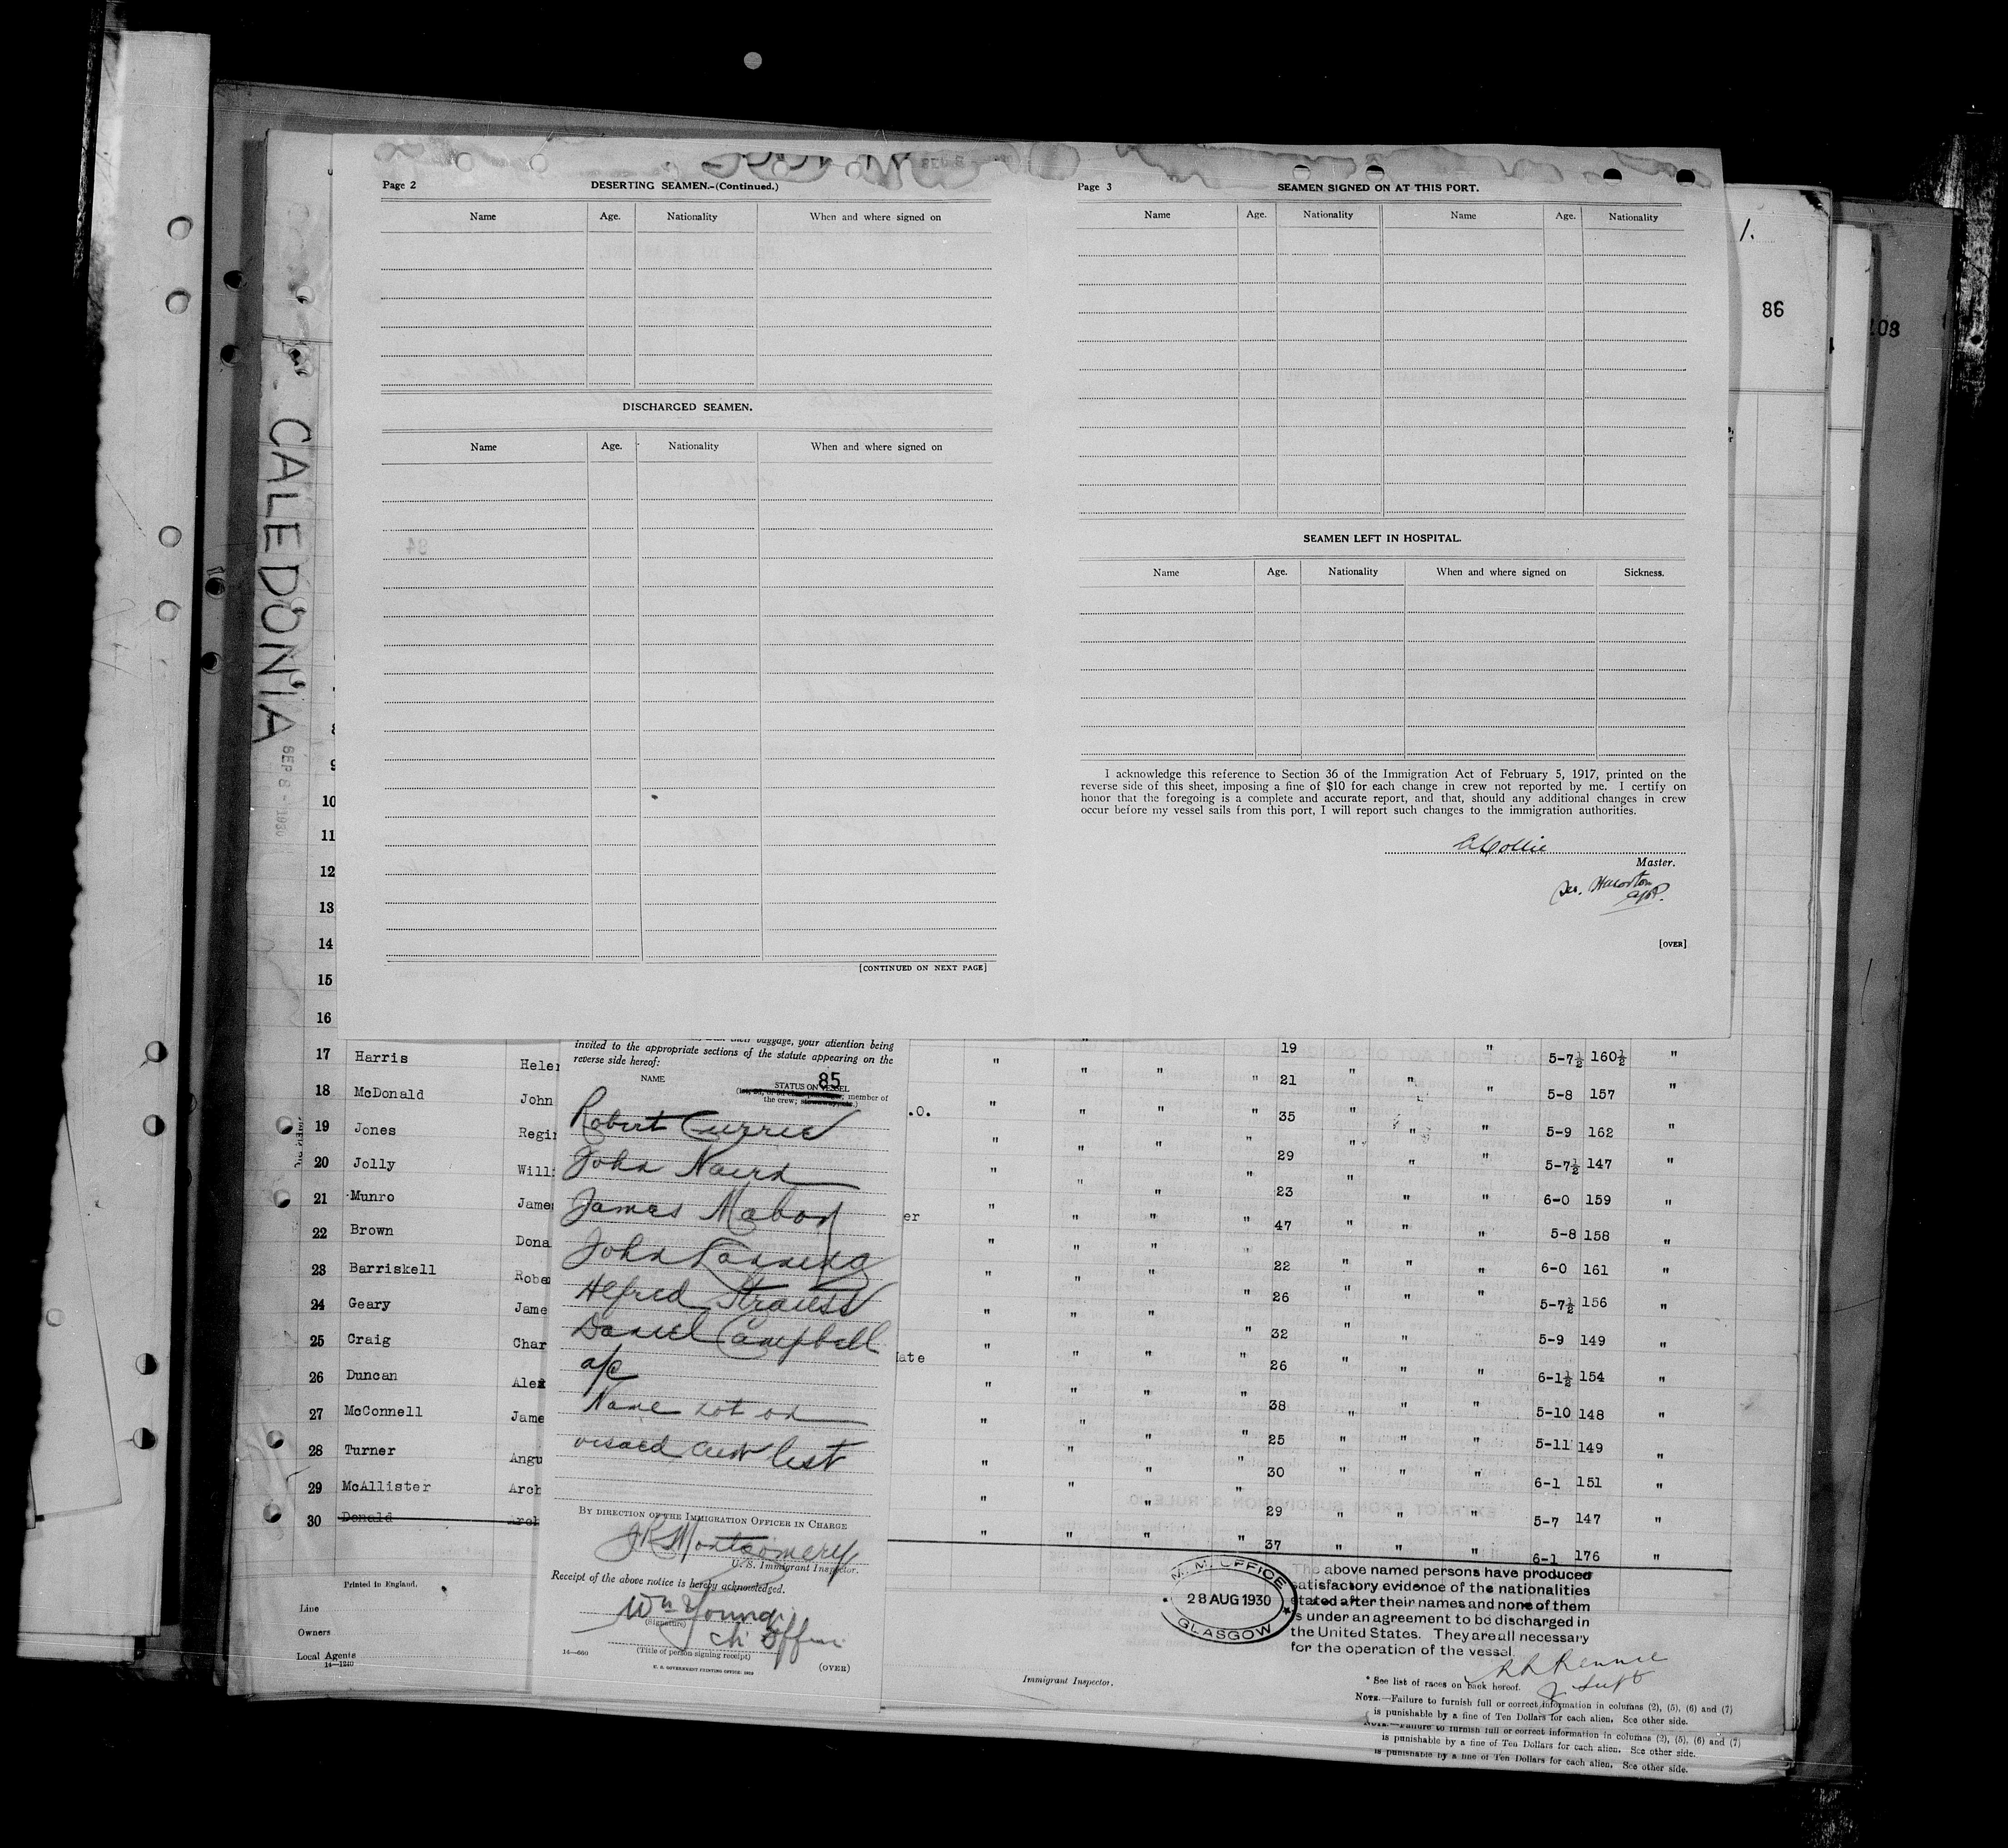 Page 2
DESERTING SEAMEN.-(Continued.)
Name Age. Nationality When and where signed on
DISCHARGED SEAMEN.
Name Age. Nationality When and where signed on
[CONTINUED ON NEXT PAGE]
Page 3
SEAMEN SIGNED ON AT THIS PORT.
Name Age. Nationality Name Age. Nationality
SEAMEN LEFT IN HOSPITAL.
Name Age. Nationality When and where signed on Sickness.
I acknowledge this reference to Section 36 of the Immigration Act of February 5, 1917, printed on the
reverse side of this sheet, imposing a fine of $10 for each change in crew not reported by me. I certify on
honor that the foregoing is a complete and accurate report, and that, should any additional changes in crew
occur before my vessel sails from this port, I will report such changes to the immigration authorities.
Collie
Master.
[OVER]
1.
86
108
CALEDONIA
SEP 8 - 1930
8
9
10
11
12
13
14
15
16
17 Harris Helen " 19 " 5-7½ 160½ "
18 McDonald John .O. " " " " 21 " " " 5-8 157 "
19 Jones Regi " " " " 35 " " " 5-9 162 "
20 Jolly Will " " " " 29 " " " 5-7½ 147 "
21 Munro Jame " " " " 23 " " " 6-0 159 "
22 Brown Dona er " " " " 47 " " " 5-8 158 "
23 Barriskell Robe " " " " 22 " " " 6-0 161 "
24 Geary Jame " " " " 26 " " " 5-7½ 156 "
25 Craig Char " " " " 32 " " " 5-9 149 "
26 Duncan Alex ate " " " " 26 " " " 6-1½ 154 "
27 McConnell Jame " " " " 38 " " " 5-10 148 "
28 Turner Angu " " " " 25 " " " 5-11 149 "
29 McAllister Arch " " " " 30 " " " 6-1 151 "
30 Donald Arch " " " " 29 " " " 5-7 147 "
" " " " 37 " " " 6-1 176 "
Printed in England.
Line
Owners
Local Agents
14—1240
invited to the appropriate sections of the statute appearing on the
reverse side hereof:
NAME
85
STATUS ON VESSEL
member of
the crew;
Robert Currie
John Nairn
James Mabon
John Lanning
Alfred Strauss
Daniel Campbell
a/c
Name not on
visaed crew list
BY DIRECTION OF THE IMMIGRATION OFFICER IN CHARGE
JR Montgomery
U. S. Immigrant Inspector.
Receipt of the above notice is hereby acknowledged.
Wm Young
(Signature)
Ch Officer
(Title of person signing receipt)
14—660
U. S. GOVERNMENT PRINTING OFFICE
(OVER)
M. M. OFFICE
28 AUG 1930
GLASGOW
The above named persons have produced
satisfactory evidence of the nationalities
stated after their names and none of them
is under an agreement to be discharged in
the United States. They are all necessary
for the operation of the vessel.
Immigrant Inspector.
* See list of races on back hereof.
NOTE.—Failure to furnish full or correct information in columns (2), (5), (6) and (7)
is punishable by a fine of Ten Dollars for each alien. See other side.
NOTE.—Failure to furnish full or correct information in columns (2), (5), (6) and (7)
is punishable by a fine of Ten Dollars for each alien. See other side.
is punishable by a fine of Ten Dollars for each alien. See other side.